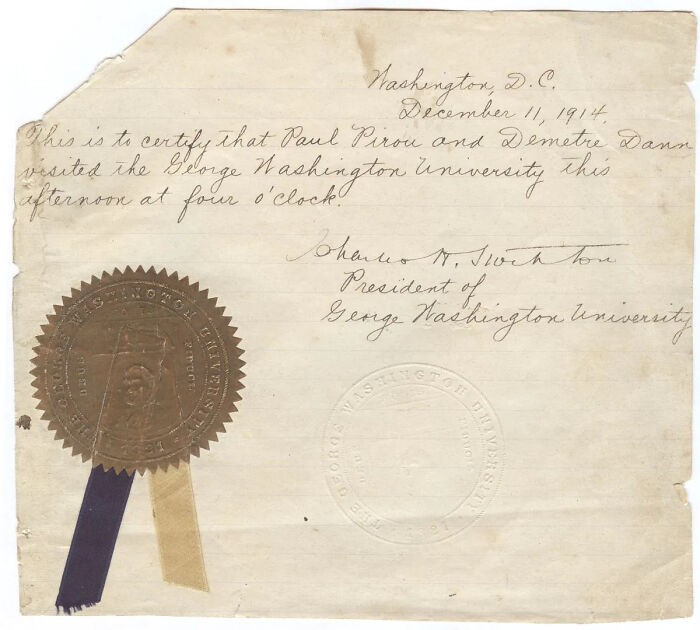 Washington, D.C.
December 11, 1914.
This is to certify that Paul Pirou and Demetre Dann
visited the George Washington University this
afternoon at four o'clock.
Charles H. Stockton
President of
George Washington University
THE GEORGE WASHINGTON UNIVERSITY
DEUS FIDUCIA
1821
THE GEORGE WASHINGTON UNIVERSITY
1821